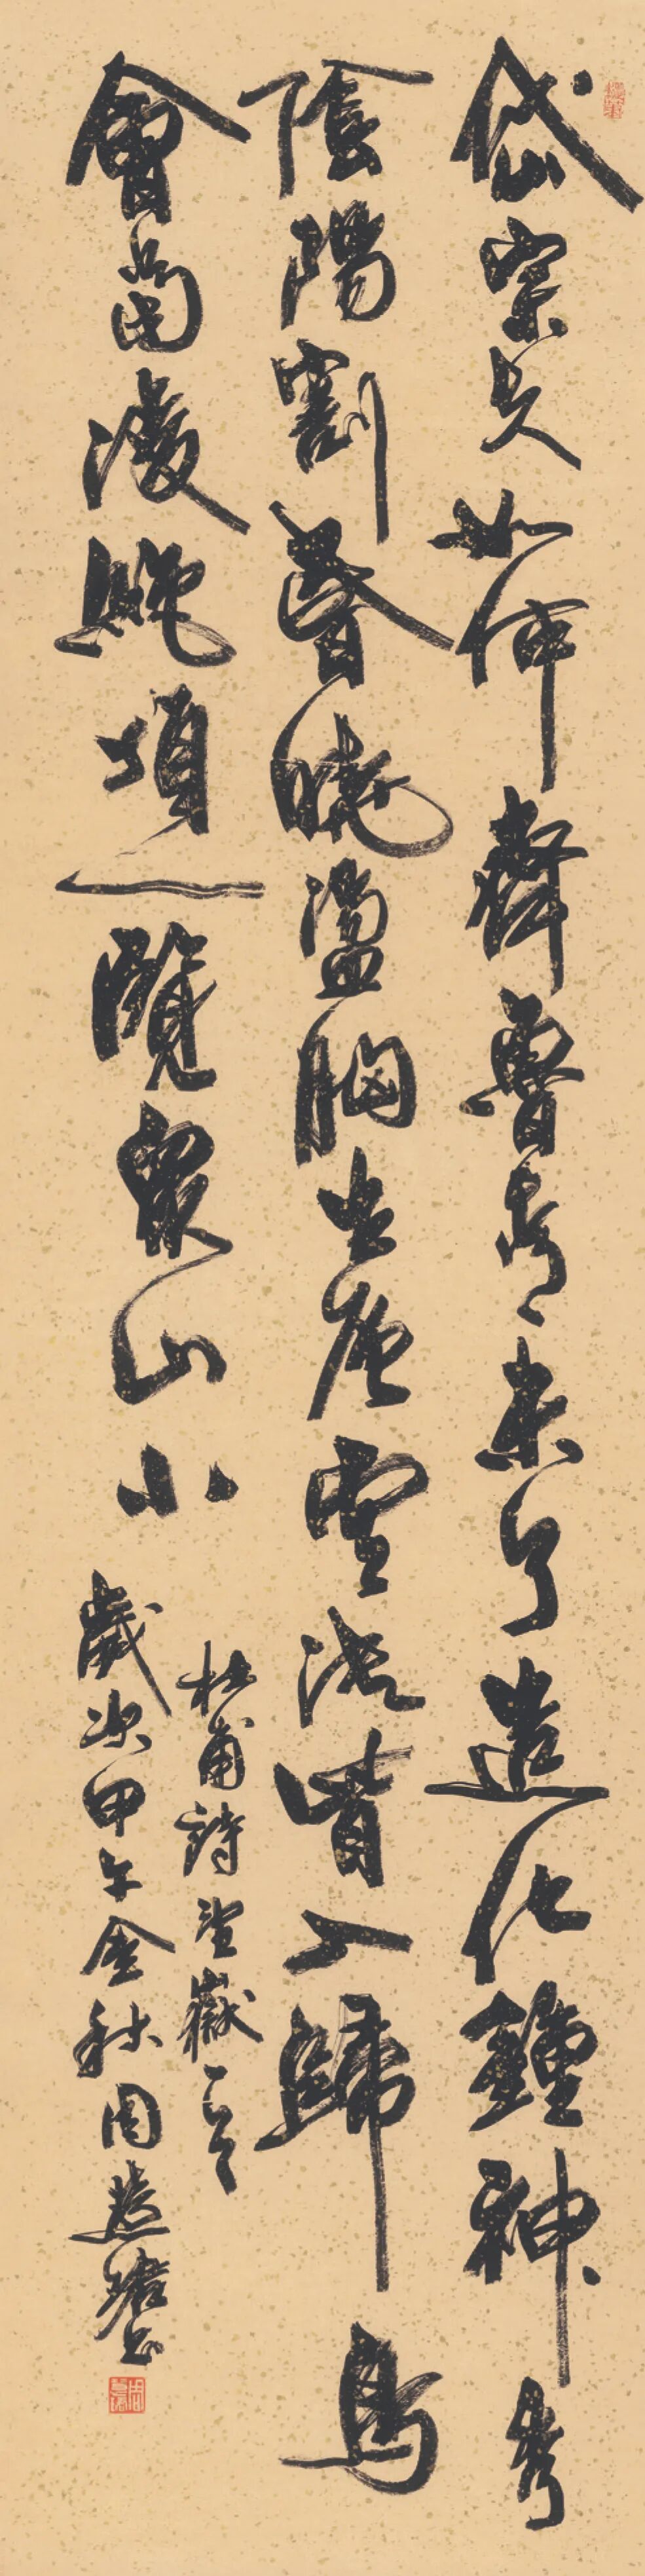 岱宗夫如何齊魯青未了造化鍾神秀
陰陽割昏曉盪胸生層雲決眥入歸鳥
會當凌絕頂一覽眾山小
杜甫詩望嶽一首
歲次甲午金秋周慧珺書